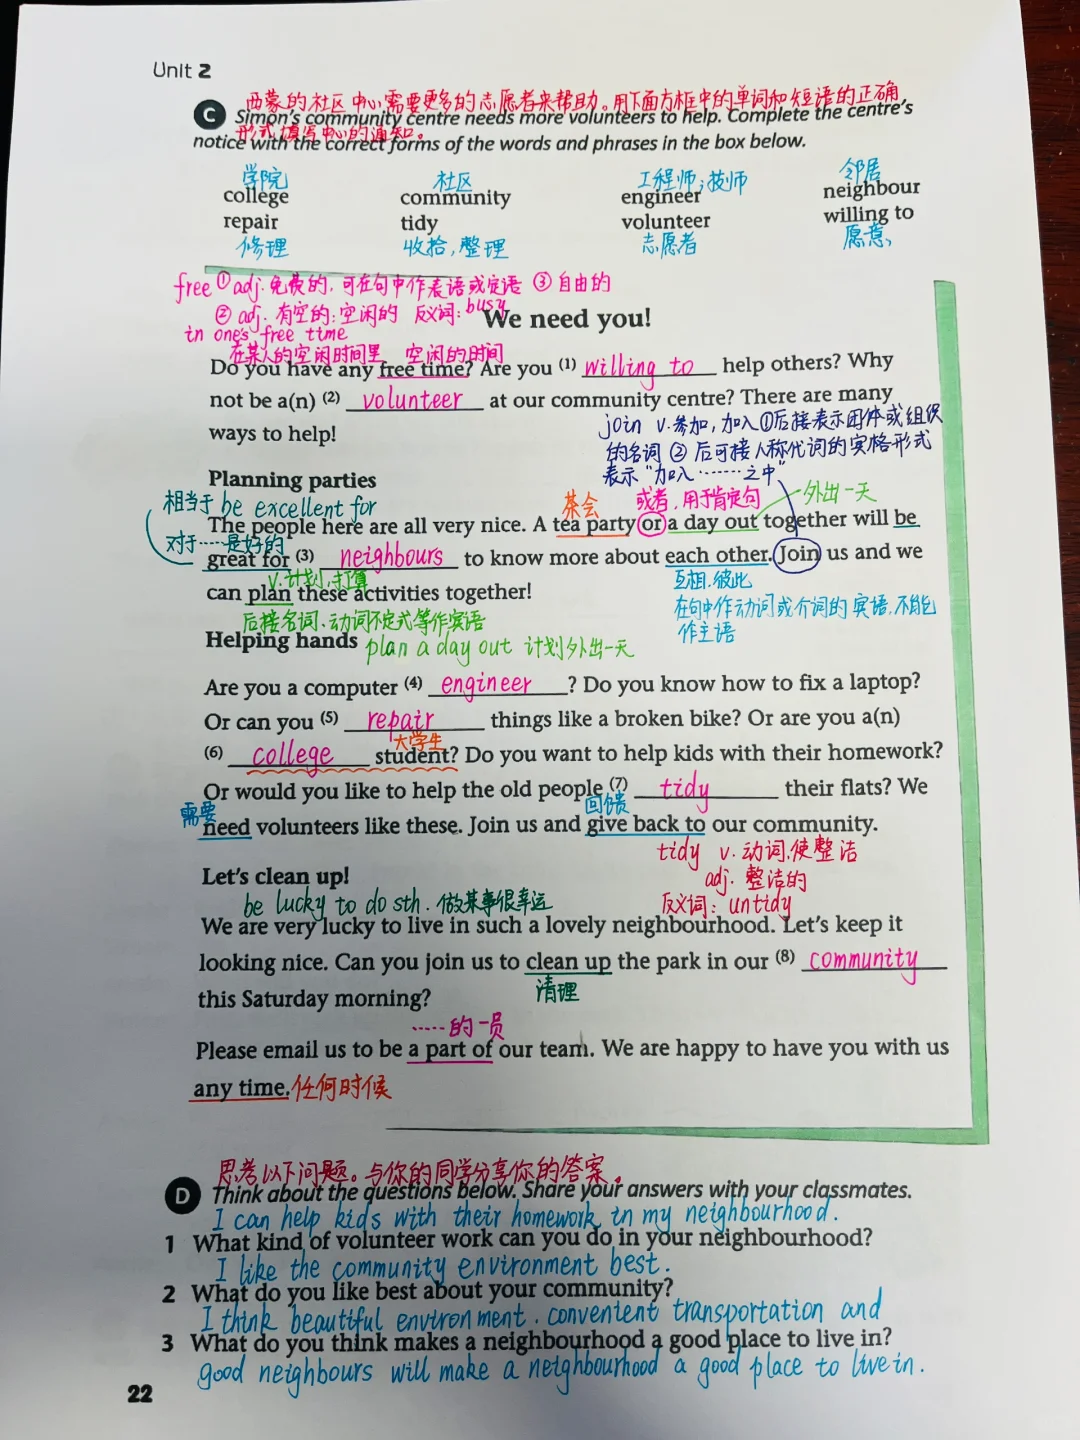 Unit 2
西蒙的社区中心需要更多的志愿者来帮助。用下面方框中的单词和短语的正确
C Simon's community centre needs more volunteers to help. Complete the centre's
形式填写中心的通知。
notice with the correct forms of the words and phrases in the box below.
学院 社区 工程师;技师 邻居
college community engineer neighbour
repair tidy volunteer willing to
修理 收拾,整理 志愿者 愿意、
free ①adj.免费的,可在句中作表语或定语 ③自由的
② adj. 有空的;空闲的 反义词:busy
We need you!
in one's free time
在某人的空闲时间里 空闲的时间
Do you have any free time? Are you (1) willing to help others? Why
not be a(n) (2) volunteer at our community centre? There are many
ways to help!
join v.参加,加入①后接表示团体或组织
的名词②后可接人称代词的宾格形式
表示“加入……之中”
Planning parties
相当于 be excellent for 茶会 或者,用于肯定句 外出一天
The people here are all very nice. A tea party or a day out together will be
对于……是好的
great for (3) neighbours to know more about each other. Join us and we
v.计划,打算 互相,彼此
can plan these activities together!
后接名词、动词不定式等作宾语 在句中作动词或介词的宾语,不能
作主语
Helping hands plan a day out 计划外出一天
Are you a computer (4) engineer? Do you know how to fix a laptop?
Or can you (5) repair things like a broken bike? Or are you a(n)
大学生
(6) college student? Do you want to help kids with their homework?
Or would you like to help the old people (7) tidy their flats? We
需要 回馈
need volunteers like these. Join us and give back to our community.
tidy v. 动词,使整洁
adj. 整洁的
反义词: untidy
Let's clean up!
be lucky to do sth. 做某事很幸运
We are very lucky to live in such a lovely neighbourhood. Let's keep it
looking nice. Can you join us to clean up the park in our (8) community
清理
this Saturday morning?
……的一员
Please email us to be a part of our team. We are happy to have you with us
any time. 任何时候
思考以下问题。与你的同学分享你的答案。
D Think about the questions below. Share your answers with your classmates.
I can help kids with their homework in my neighbourhood.
1 What kind of volunteer work can you do in your neighbourhood?
I like the community environment best.
2 What do you like best about your community?
I think beautiful environment. convenient transportation and
3 What do you think makes a neighbourhood a good place to live in?
good neighbours will make a neighbourhood a good place to live in.
22